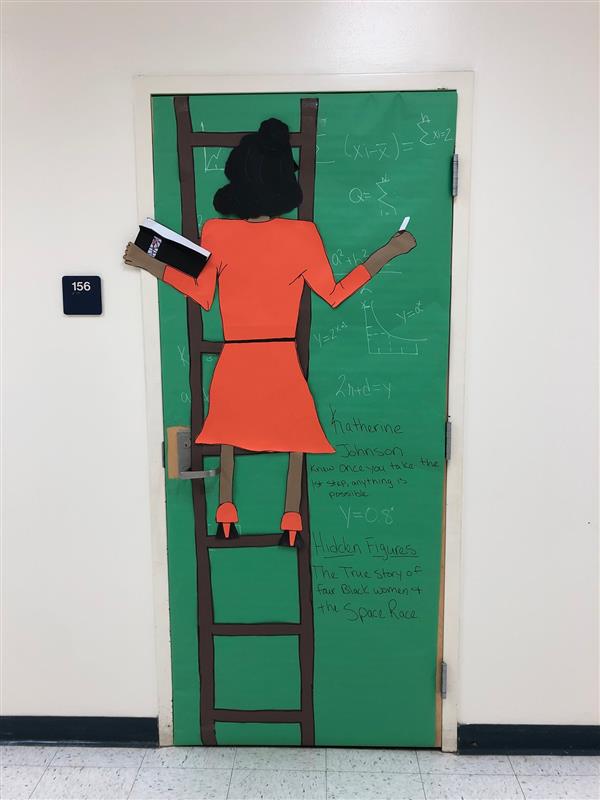 156
(xi-x̄)=
Σxi=2
Q=Σ
a²+b²
y=aˣ
2n+d=y
Katherine
Johnson
Know Once you take the
1st step, anything is
possible
Y=0.8ˣ
Hidden Figures
The True story of
four Black women &
the Space Race